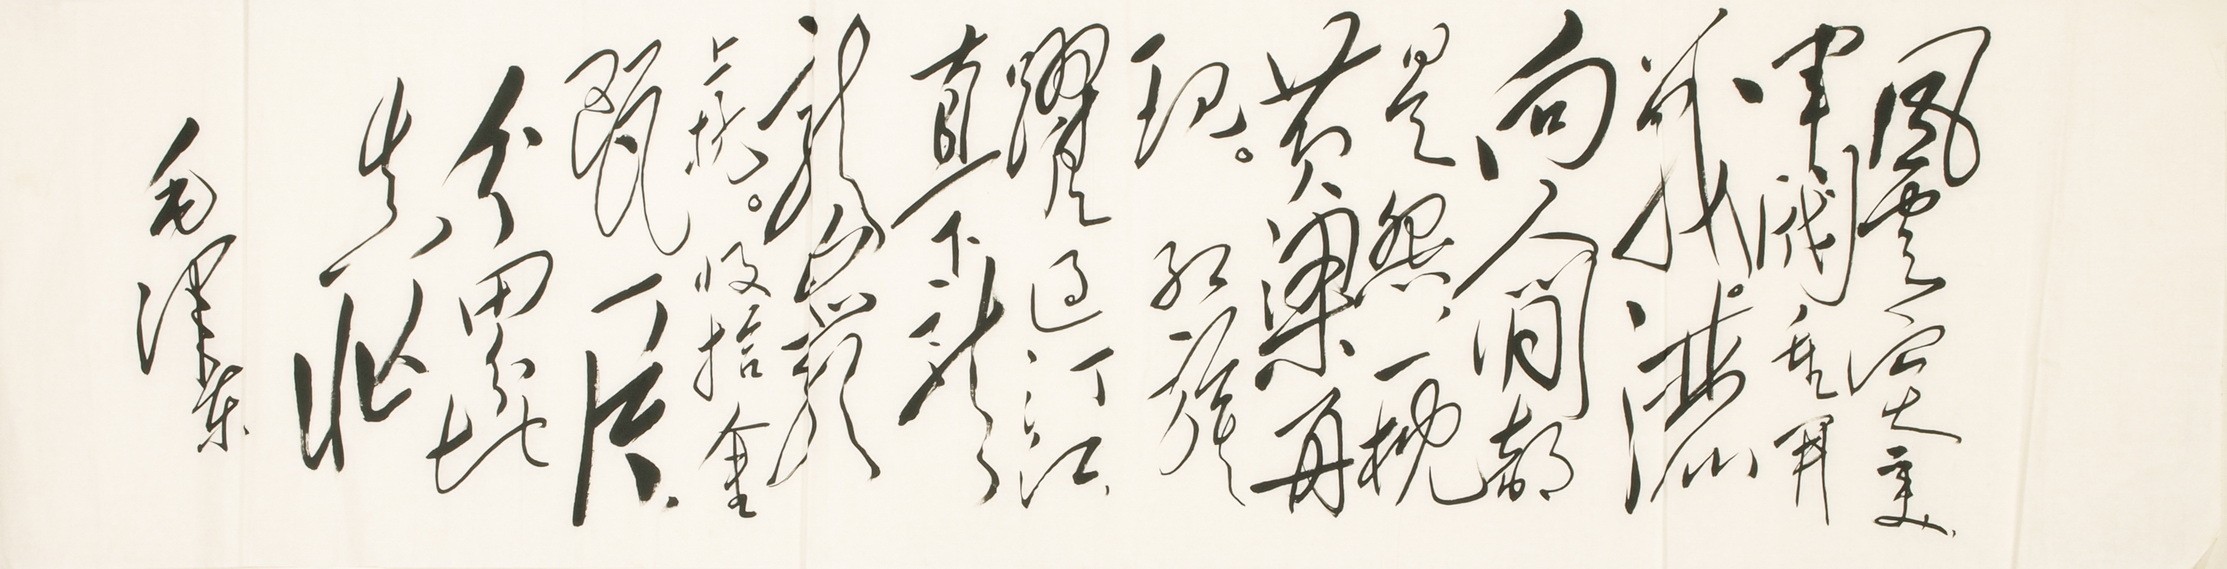 風雲突變,
軍閥重開
戰。灑
向人間都
是怨,一枕
黃粱再
現。紅旗
躍過汀江,
直下
龍巖
上杭。收拾金
甌一片,
分田分地
真忙
毛澤東